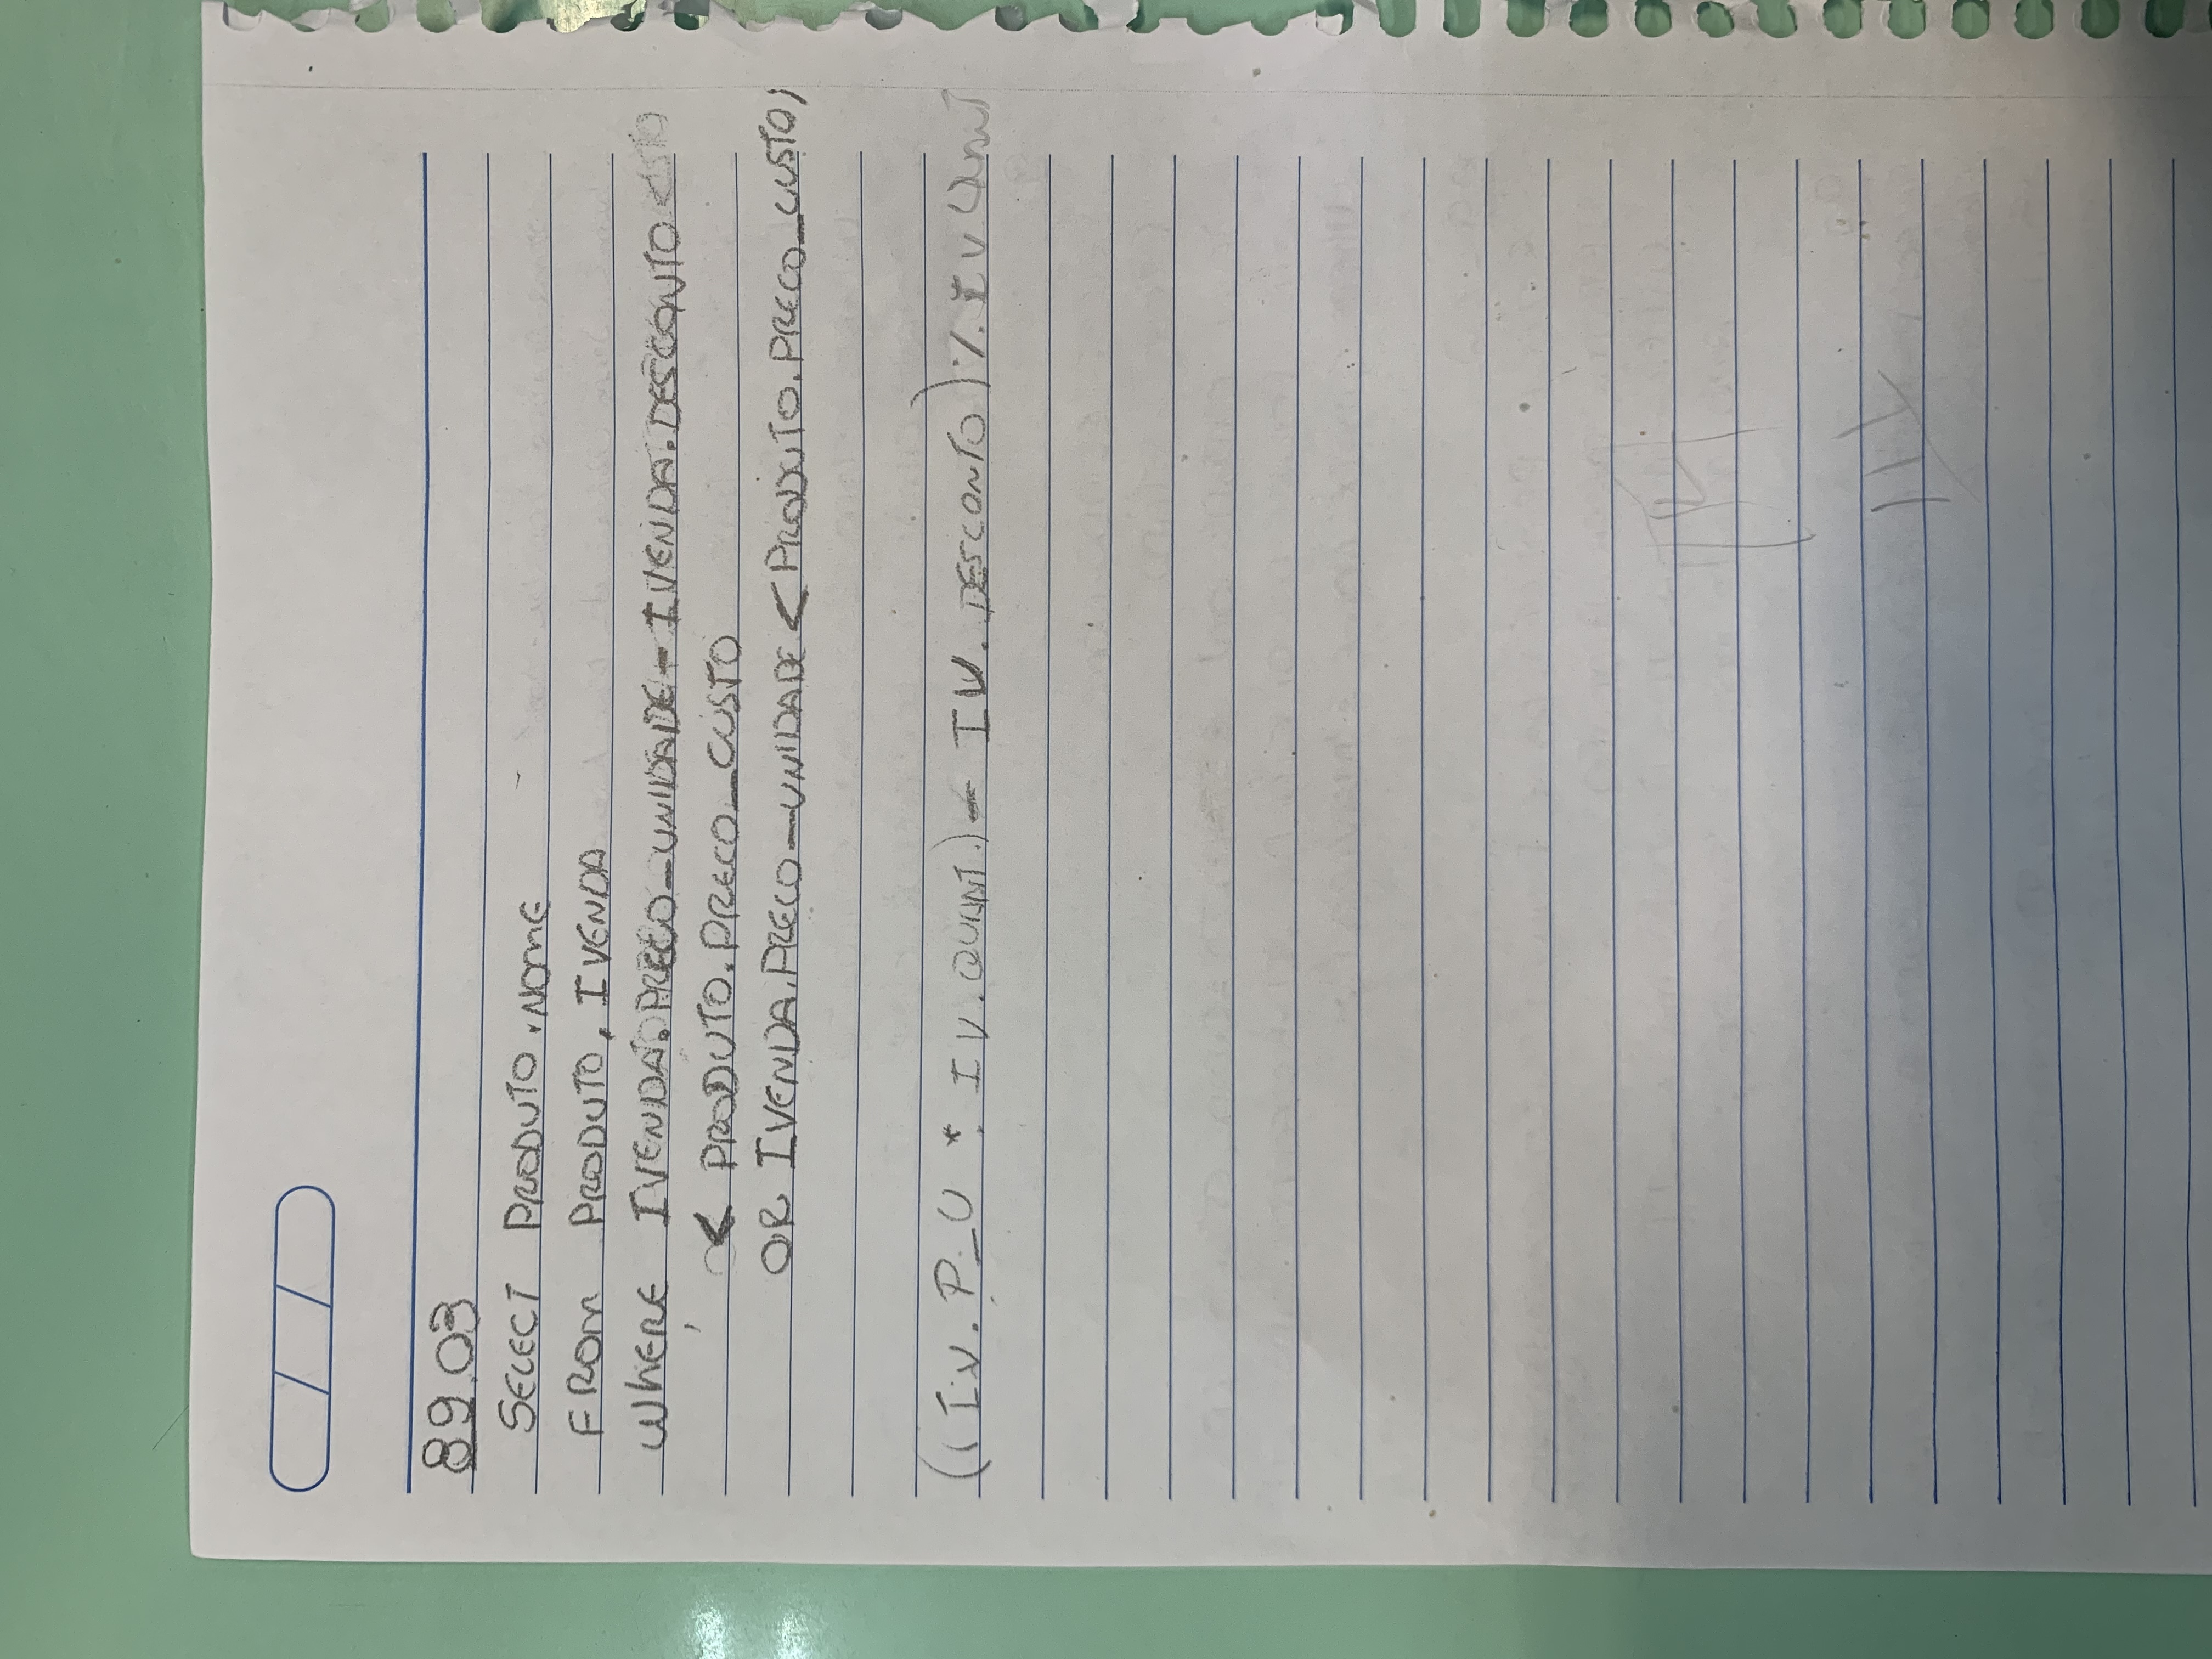 89.03
SELECT PRODUTO.NOME
FROM PRODUTO, IVENDA
WHERE IVENDA.PRECO_UNIDADE - IVENDA.DESCONTO
< PRODUTO.PRECO_CUSTO
OR IVENDA.PRECO_UNIDADE < PRODUTO.PRECO_CUSTO;
((I.V.P_U * IV.QUANT.) - IV.DESCONTO) % IV